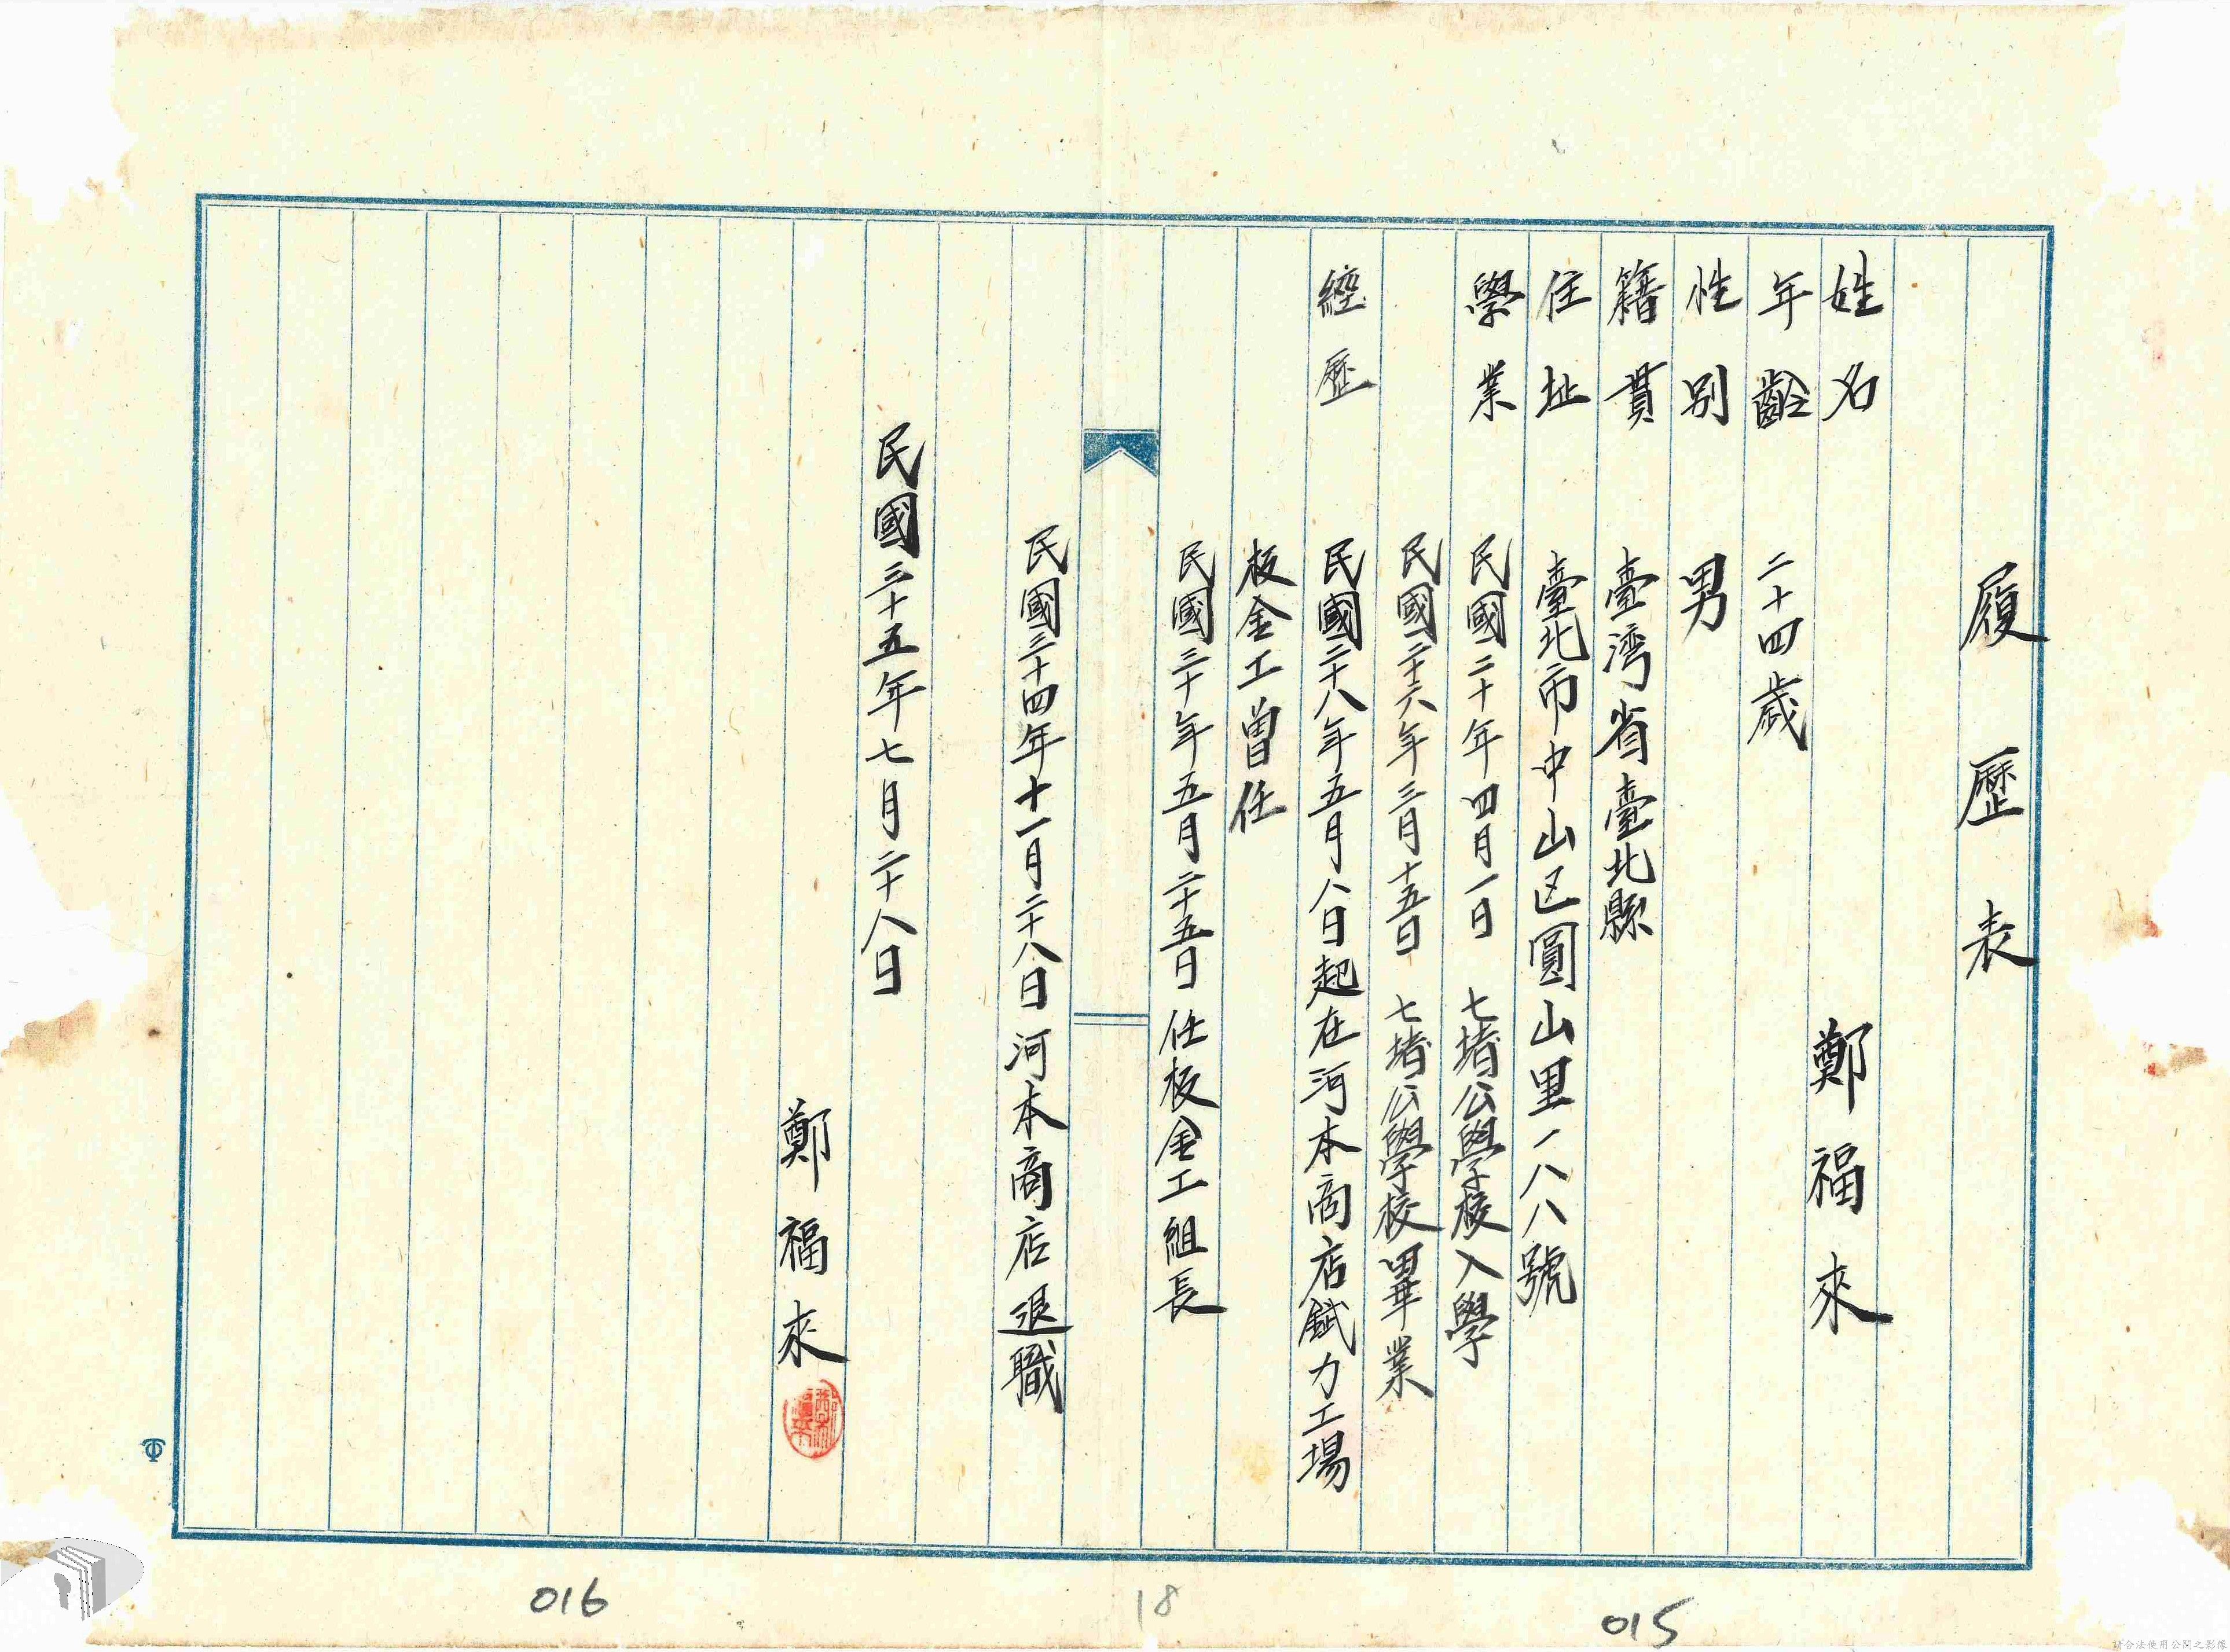 履歷表
姓名 鄭福來
年齡 二十四歲
性別 男
籍貫 臺湾省臺北縣
住址 臺北市中山区圓山里一八八號
學業 民國二十年四月一日 七堵公學校入學
民國二十六年三月十五日 七堵公學校畢業
經歷 民國二十八年五月八日起在河本商店鉽力工場
板金工曽任
民國三十年五月二十五日任板金工組長
民國三十四年十一月二十八日河本商店退職
民國三十五年七月二十八日
鄭福來
015
18
016